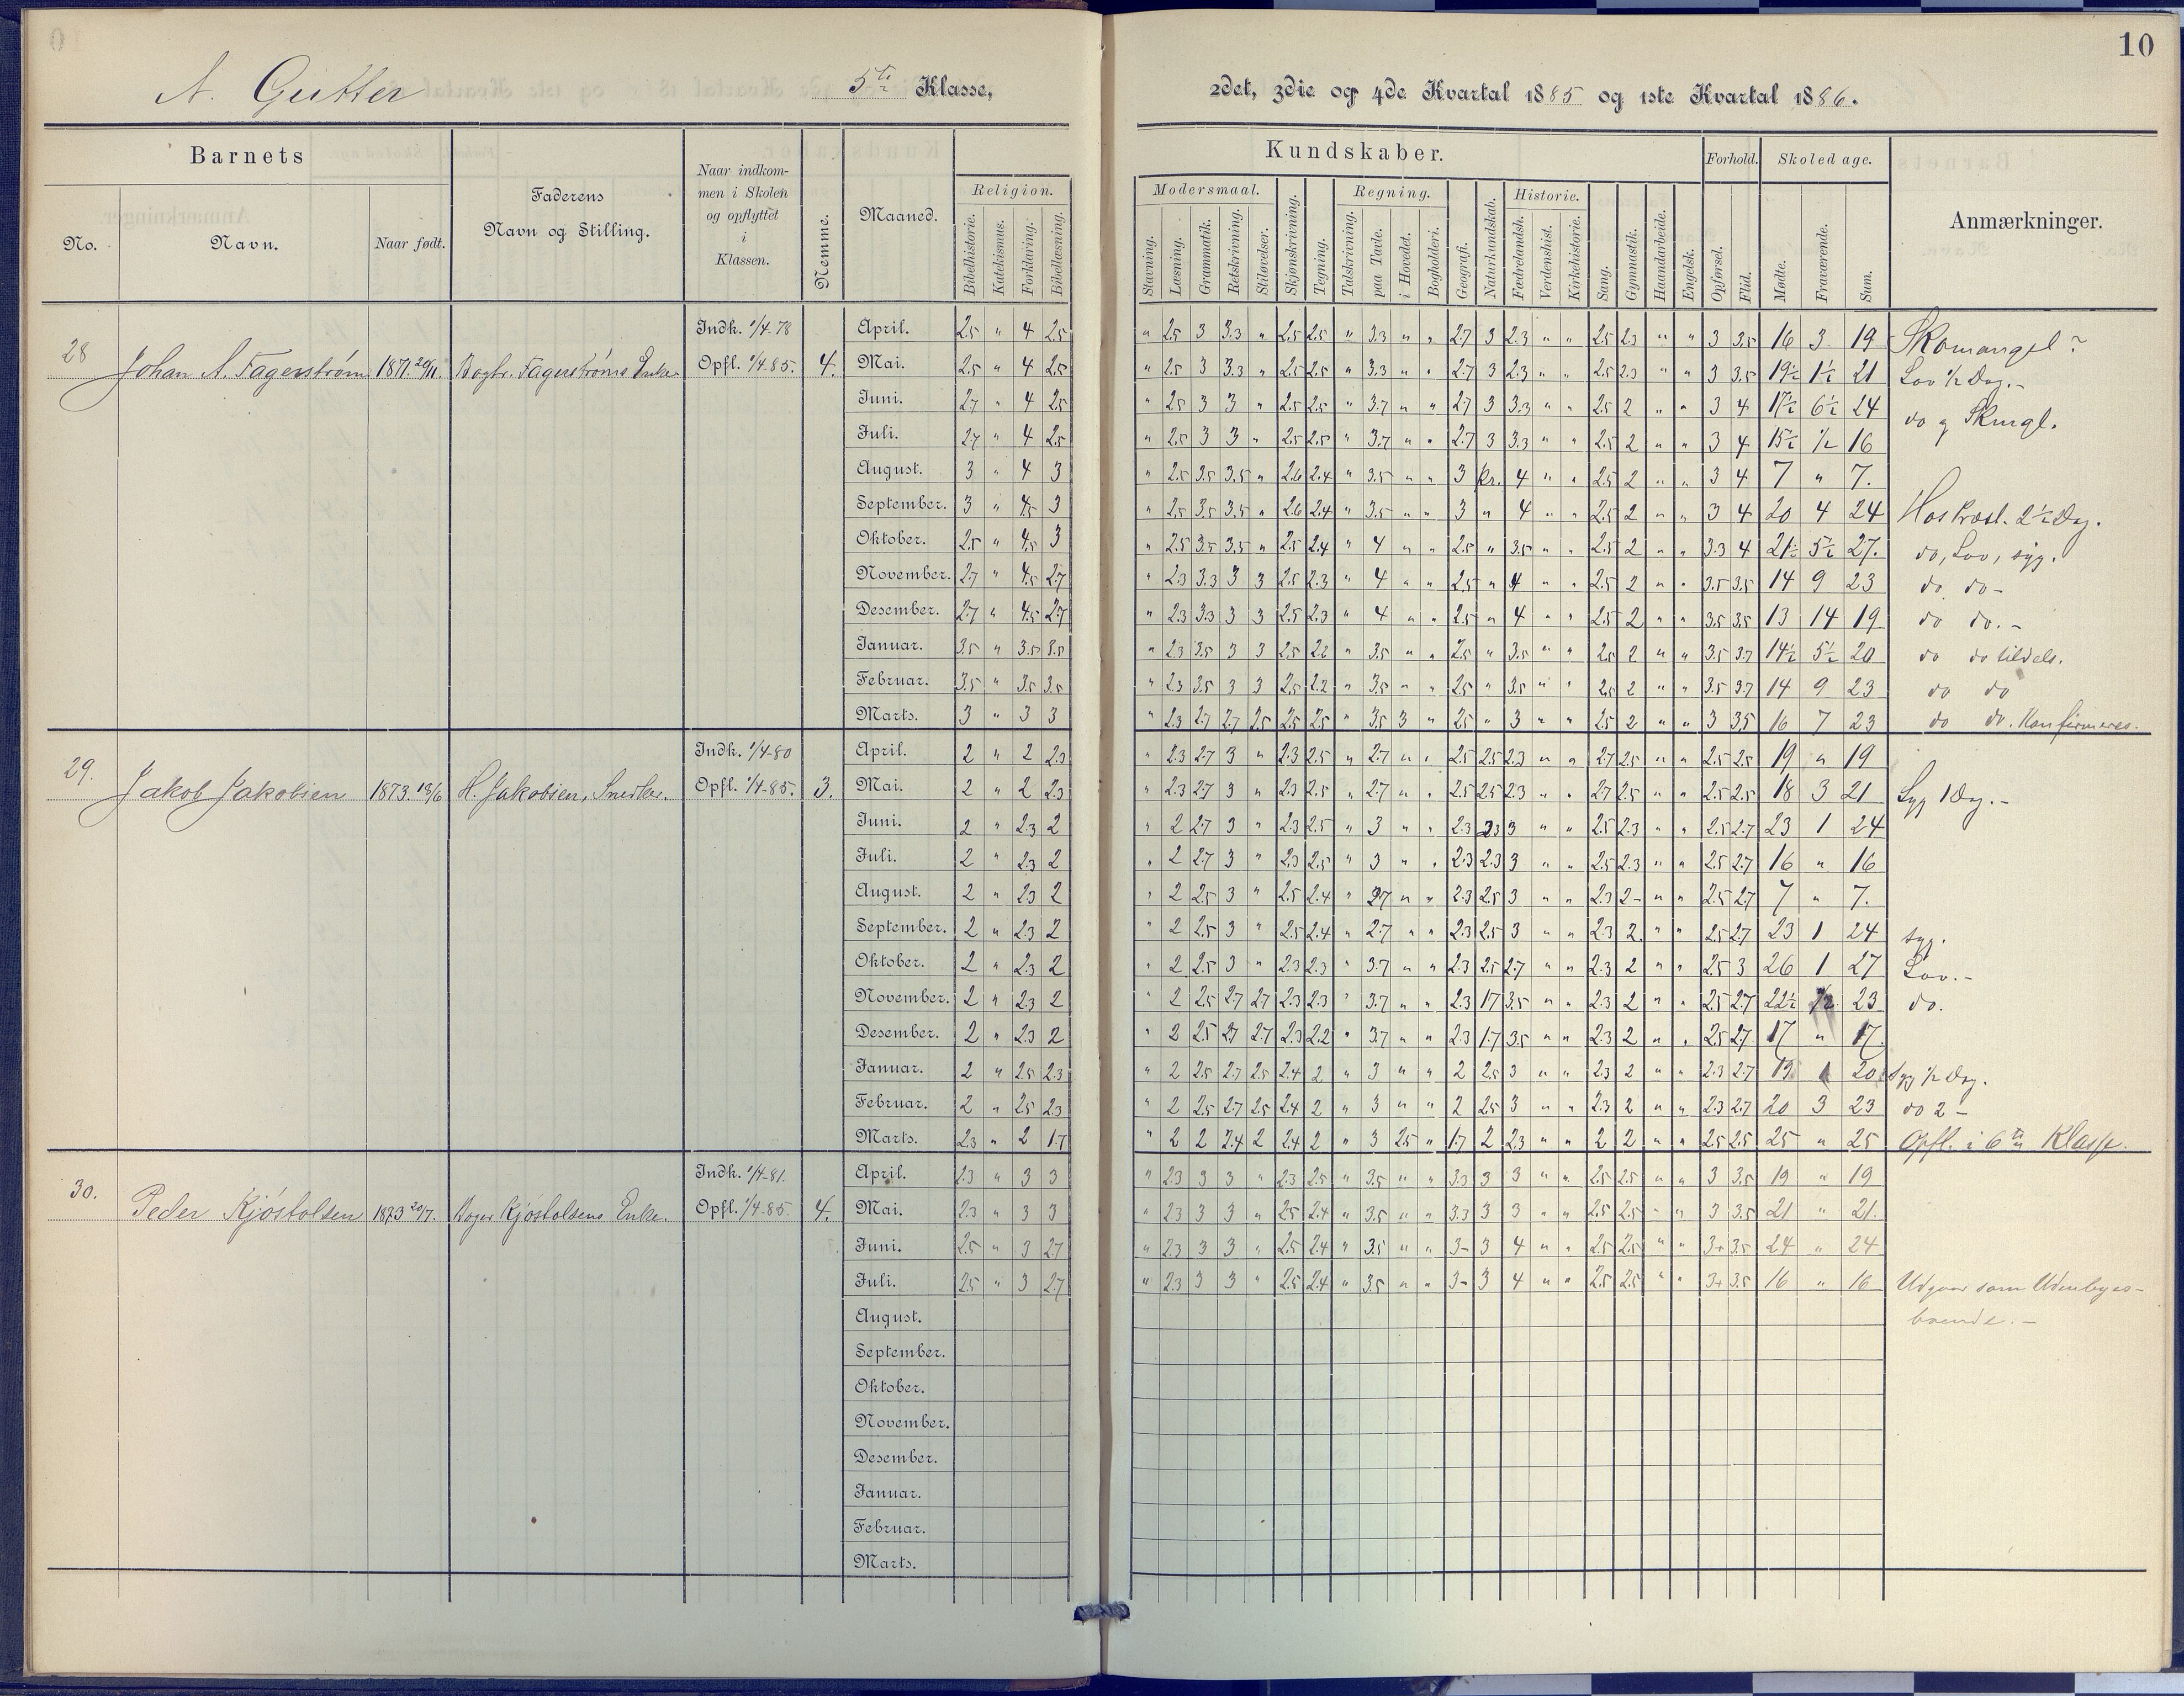 10
A. Gutter 5te Klasse, 2det, 3die og 4de Kvartal 1885 og 1ste Kvartal 1886.
Barnets
No.
Navn.
Naar født.
Faderens
Navn og Stilling.
Naar indkom-
men i Skolen
og opflyttet
i
Klassen.
Nemme.
Maaned.
Kundskaber.
Religion.
Bibelhistorie.
Katekismus.
Forklaring.
Bibellæsning.
Modersmaal.
Stavning.
Læsning.
Grammatik.
Retskrivning.
Stiløvelser.
Skjønskrivning.
Tegning.
Regning.
Talskrivning.
paa Tavle.
i Hovedet.
Bogholderi.
Geografi.
Naturkundskab.
Historie.
Fædrelandsh.
Verdenshist.
Kirkehistorie.
Sang.
Gymnastik.
Haandarbeide.
Engelsk.
Forhold.
Opførsel.
Flid.
Skoledage.
Mødte.
Fraværende.
Sum.
Anmærkninger.
28 Johan A. Fagerstrøm 1871 20/11. Fagerstrøms Enke Indk. 1/4-78 Opfl. 1/4.85. 4.
April. 2.5 " 4 2.5 " 2.5 3 3.3 " 2.5 2.5 " 3.3 " " 2.7 3 2.3 " " 2.5 2.3 " " 3 3.5 16 3 19 Skomangel?
Mai. 2.5 " 4 2.5 " 2.5 3 3.3 " 2.5 2.5 " 3.3 " " 2.7 3 2.3 " " 2.5 2.3 " " 3 3.5 19½ 1½ 21 Lov 1/2 Dag.-
Juni. 2.7 " 4 2.5 " 2.5 3 3 " 2.5 2.5 " 3.7 " " 2.7 3 3.3 " " 2.5 2 " " 3 4 17½ 6½ 24 do
Juli. 2.7 " 4 2.5 " 2.5 3 3 " 2.5 2.5 " 3.7 " " 2.7 3 3.3 " " 2.5 2 " " 3 4 15½ 1/2 16
August. 3 " 4 3 " 2.5 3.5 3.5 " 2.6 2.4 " 3.5 " " 3 4 " " 2.5 2 " " 3 4 7 " 7.
September. 3 " 4.5 3 " 2.5 3.5 3.5 " 2.6 2.4 " 3.5 " " 3 " 4 " " 2.5 2 " " 3 4 20 4 24 Hos Præst. 2½ Dag.
Oktober. 2.5 " 4.5 3 " 2.5 3.5 3.5 " 2.5 2.4 " 4 " " 2.5 " 3.5 " " 2.5 2 " " 3.3 4 21½ 5½ 27. do, Lov, syg.
November. 2.7 " 4.5 2.7 " 2.3 3.3 3 3 2.5 2.3 " 4 " " 2.5 " 4 " " 2.5 2 " " 3.5 3.5 14 9 23 do do -
Desember. 2.7 " 4.5 2.7 " 2.3 3.3 3 3 2.5 2.3 " 4 " " 2.5 " 4 " " 2.5 2 " " 3.5 3.5 13 14 19 do do. -
Januar. 3.5 " 3.5 3.5 " 2.3 3.5 3 3 2.5 2.2 " 3.5 " " 2.5 " 3.5 " " 2.5 2 " " 3.5 3.7 14½ 5½ 20 do do tildels.
Februar. 3.5 " 3.5 3.5 " 2.3 3.5 3 3 2.5 2.2 " 3.5 " " 2.5 " 3.5 " " 2.5 2 " " 3.5 3.7 14 9 23 do do
Marts. 3 " 3 3 " 2.3 2.7 2.7 2.5 2.5 2.5 " 3.5 3 " 2.5 " 3 " " 2.5 2 " " 3 3.5 16 7 23 do do. Konfirmeres.
29. Jakob Jakobsen 1873. 13/6 H. Jakobsen, Snedker. Indk. 1/4-80 Opfl. 1/4-85. 3.
April. 2 " 2 2.3 " 2.3 2.7 3 " 2.3 2.5 " 2.7 " " 2.5 2.5 2.3 " " 2.7 2.5 " " 2.5 2.5 19 " 19
Mai. 2 " 2 2.3 " 2.3 2.7 3 " 2.3 2.5 " 2.7 " " 2.5 2.5 2.3 " " 2.7 2.5 " " 2.5 2.5 18 3 21 Syg 1 Dag.-
Juni. 2 " 2.3 2 " 2 2.7 3 " 2.3 2.5 " 3 " " 2.3 2.3 3 " " 2.5 2.3 " " 2.5 2.7 23 1 24
Juli. 2 " 2.3 2 " 2 2.7 3 " 2.3 2.5 " 3 " " 2.3 2.3 3 " " 2.5 2.3 " " 2.5 2.7 16 " 16
August. 2 " 2.3 2 " 2 2.5 3 " 2.5 2.4 " 2.7 " " 2.3 2.5 3 " " 2.3 2- " " 2.5 2.7 7 " 7.
September. 2 " 2.3 2 " 2 2.5 3 " 2.5 2.4 " 2.7 " " 2.3 2.5 3 " " 2.3 2. " " 2.5 2.7 23 1 24 syg.
Oktober. 2 " 2.3 2 " 2 2.5 3 " 2.3 2.3 " 3.7 " " 2.3 2.5 2.7 " " 2.3 2 " " 2.5 3 26 1 27 Lov.-
November. 2 " 2.3 2 " 2 2.5 2.7 2.7 2.3 2.3 " 3.7 " " 2.3 1.7 3.5 " " 2.3 2 " " 2.5 2.7 22½ 1/2 23 do.
Desember. 2 " 2.3 2 " 2 2.5 2.7 2.7 2.3 2.2 " 3.7 " " 2.3 1.7 3.5 " " 2.3 2 " " 2.5 2.7 17 " 17.
Januar. 2 " 2.5 2.3 " 2 2.5 2.7 2.5 2.4 2 " 3 " " 2 2.5 3 " " 2.3 2 " " 2.3 2.7 19 1 20 Syg 1/2 Dag.
Februar. 2 " 2.5 2.3 " 2 2.5 2.7 2.5 2.4 2 " 3 " " 2 2.5 3 " " 2.3 2 " " 2.3 2.7 20 3 23 do 2 -
Marts. 2.3 " 2 1.7 " 2 2 2.4 2 2.4 2 " 3 2.5 " 1.7 2 2.3 " " 2 2 " " 2.5 2.5 25 " 25 Opfl. i 6te Klasse.
30. Peder Kjøstolsen 1873 20/7. Kjøstolsens Enke. Indk. 1/4-81. Opfl. 1/4-85. 4.
April. 2.3 " 3 3 " 2.3 3 3 " 2.3 2.5 " 3.5 " " 3.3 3 3 " " 2.5 2.5 " " 3 3.5 19 " 19
Mai. 2.3 " 3 3 " 2.3 3 3 " 2.5 2.4 " 3.5 " " 3.3 3 3 " " 2.5 2.5 " " 3 3.5 21 " 21.
Juni. 2.5 " 3 2.7 " 2.3 3 3 " 2.5 2.4 " 3.5 " " 3- 3 4 " " 2.5 2.5 " " 3+ 3.5 24 " 24
Juli. 2.5 " 3 2.7 " 2.3 3 3 " 2.5 2.4 " 3.5 " " 3- 3 4 " " 2.5 2.5 " " 3+ 3.5 16 " 16 Udgaar som Udenbyes-
boende. -
August.
September.
Oktober.
November.
Desember.
Januar.
Februar.
Marts.